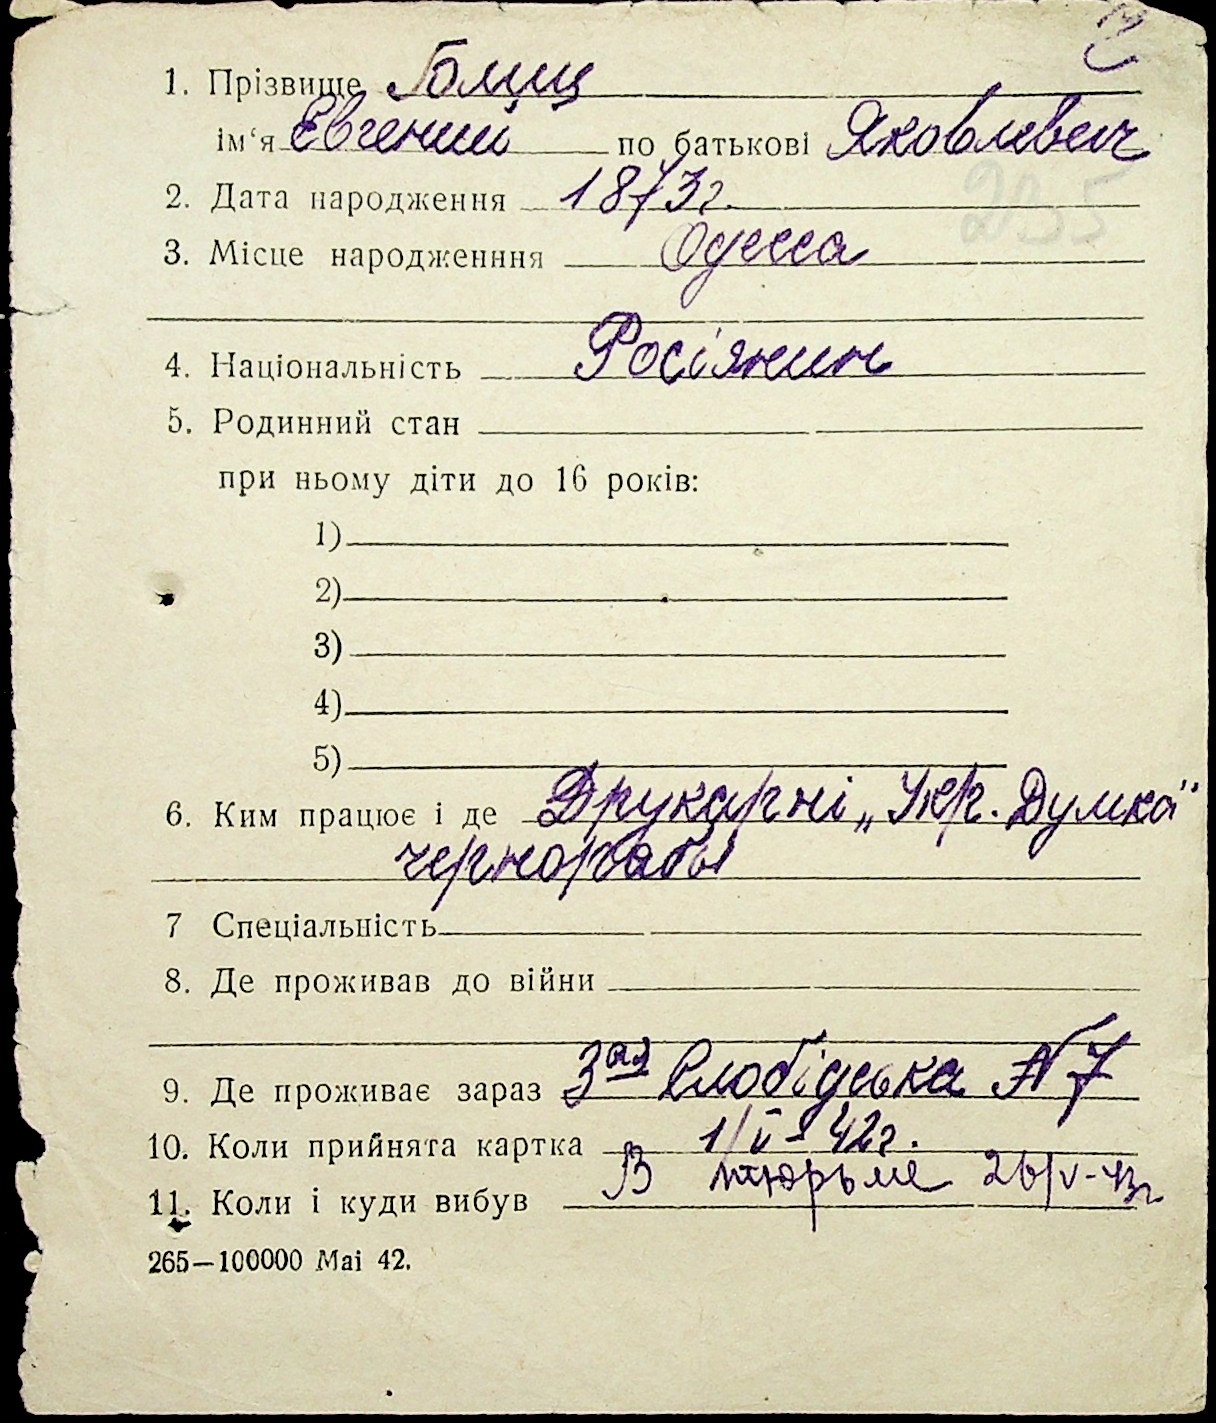 1. Прізвище Голищ
ім'я Евгений по батькові Яковлевич
2. Дата народження 1873г.
235
3. Місце народженння Одесса
4. Національність Росіянин
5. Родинний стан
при ньому діти до 16 років:
1)
2)
3)
4)
5)
6. Ким працює і де Друкарні „Укр. Думка"
чернораб
7 Спеціальність
8. Де проживав до війни
9. Де проживає зараз 3ая Слобідська № 7
10. Коли прийнята картка 1/V-42г.
11. Коли і куди вибув В тюрьме 26/V-43г
265—100000 Mai 42.